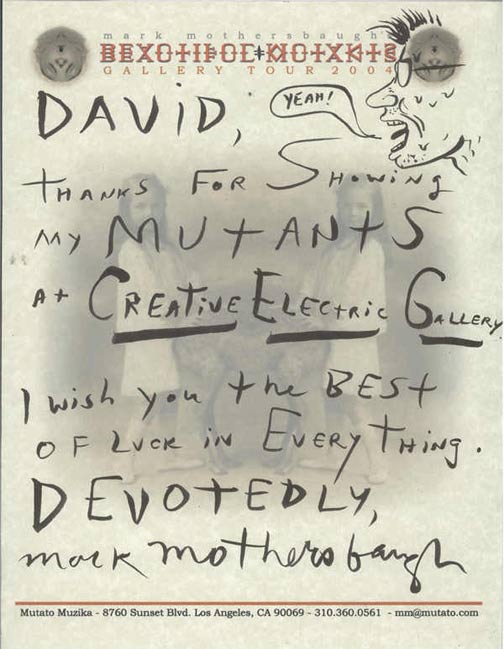 mark mothersbaugh's
BEAUTIFUL MUTANTS
GALLERY TOUR 2004
DAViD,
YEAH!
THANKS FOR SHOWiNG
MY MUTANTS
AT CREATiVE ELECTRiC GALLERY.
I wish you the BEST
OF LUCK iN EVERYTHiNG.
DEVOTEDLY,
mark mothersbaugh
Mutato Muzika - 8760 Sunset Blvd. Los Angeles, CA 90069 - 310.360.0561 - mm@mutato.com